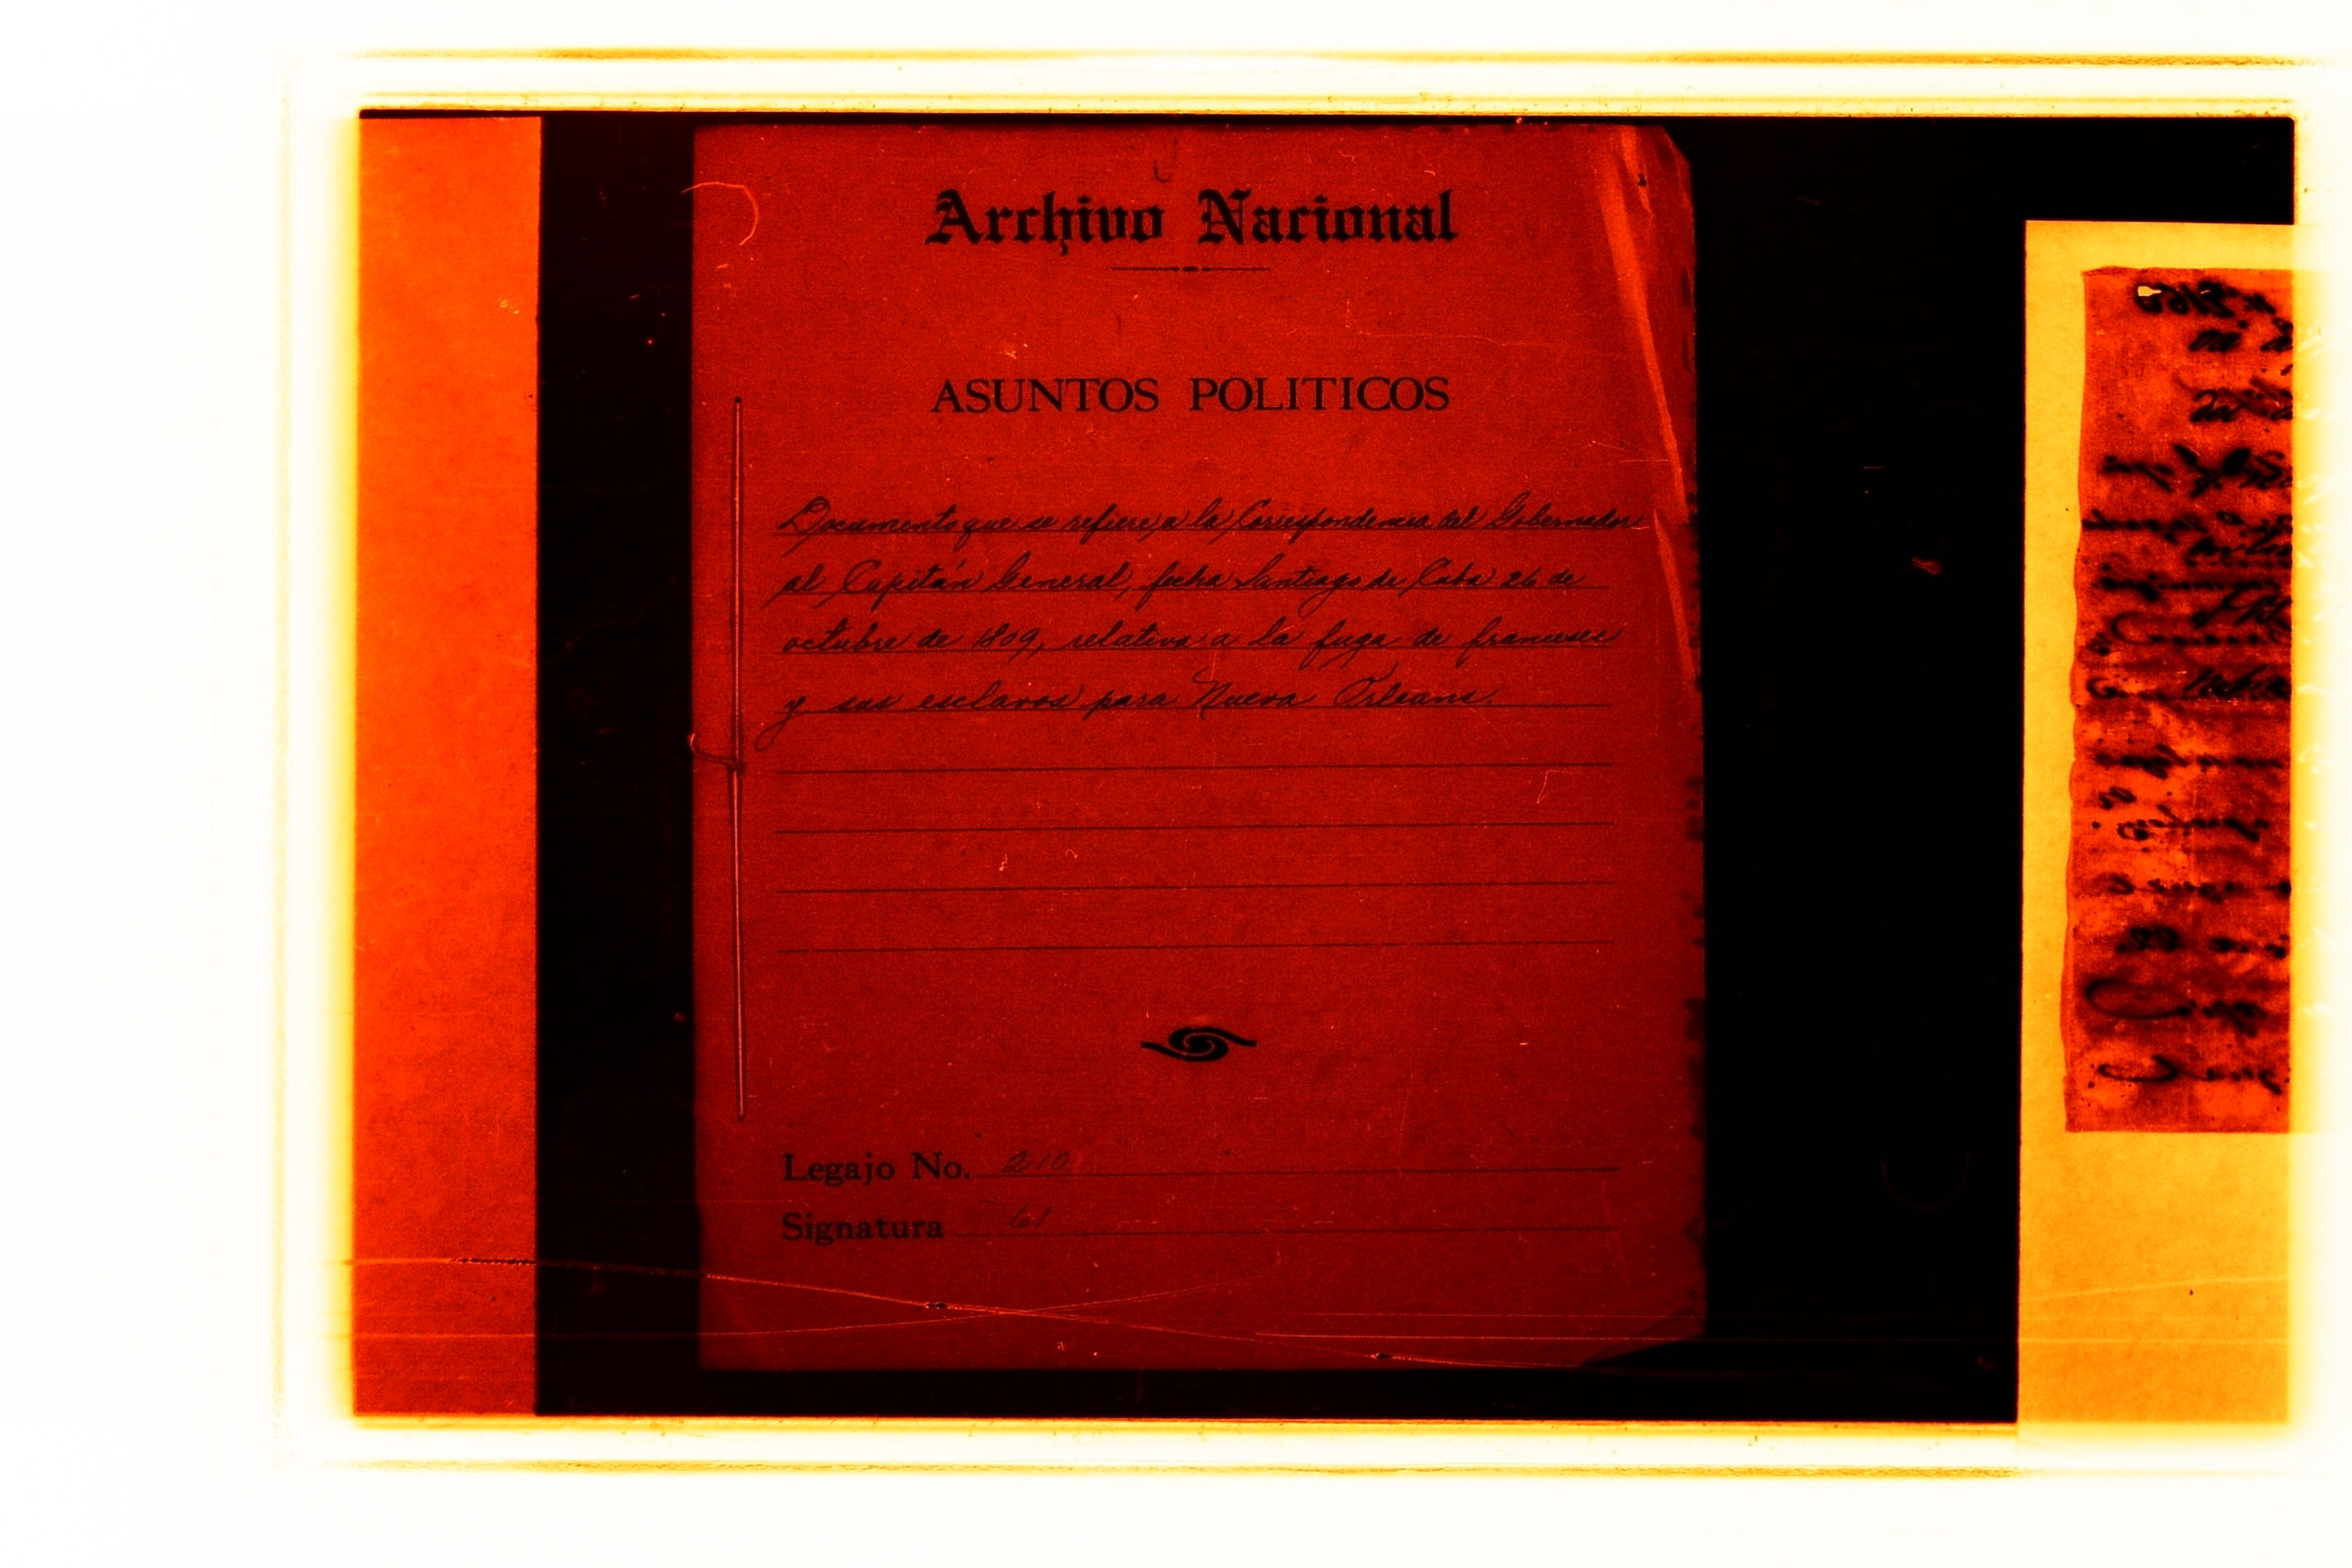 Archivo Nacional
ASUNTOS POLITICOS
Documento que se refiere a la Correspondencia del Gobernador
al Capitán General, fecha Santiago de Cuba 26 de
octubre de 1809, relativa a la fuga de franceses
y sus esclavos para Nueva Orleans.
Legajo No. 210
Signatura 61